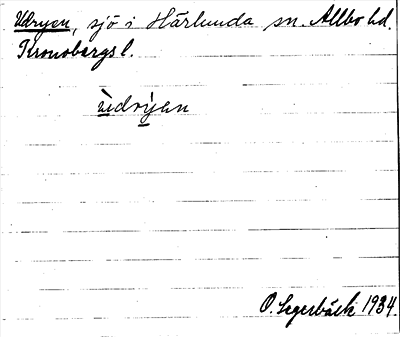 Udryen, sjö i Härlunda sn. Allbo hd.
Kronobergs l.
ùdrýen
O. Segerbäck 1934.